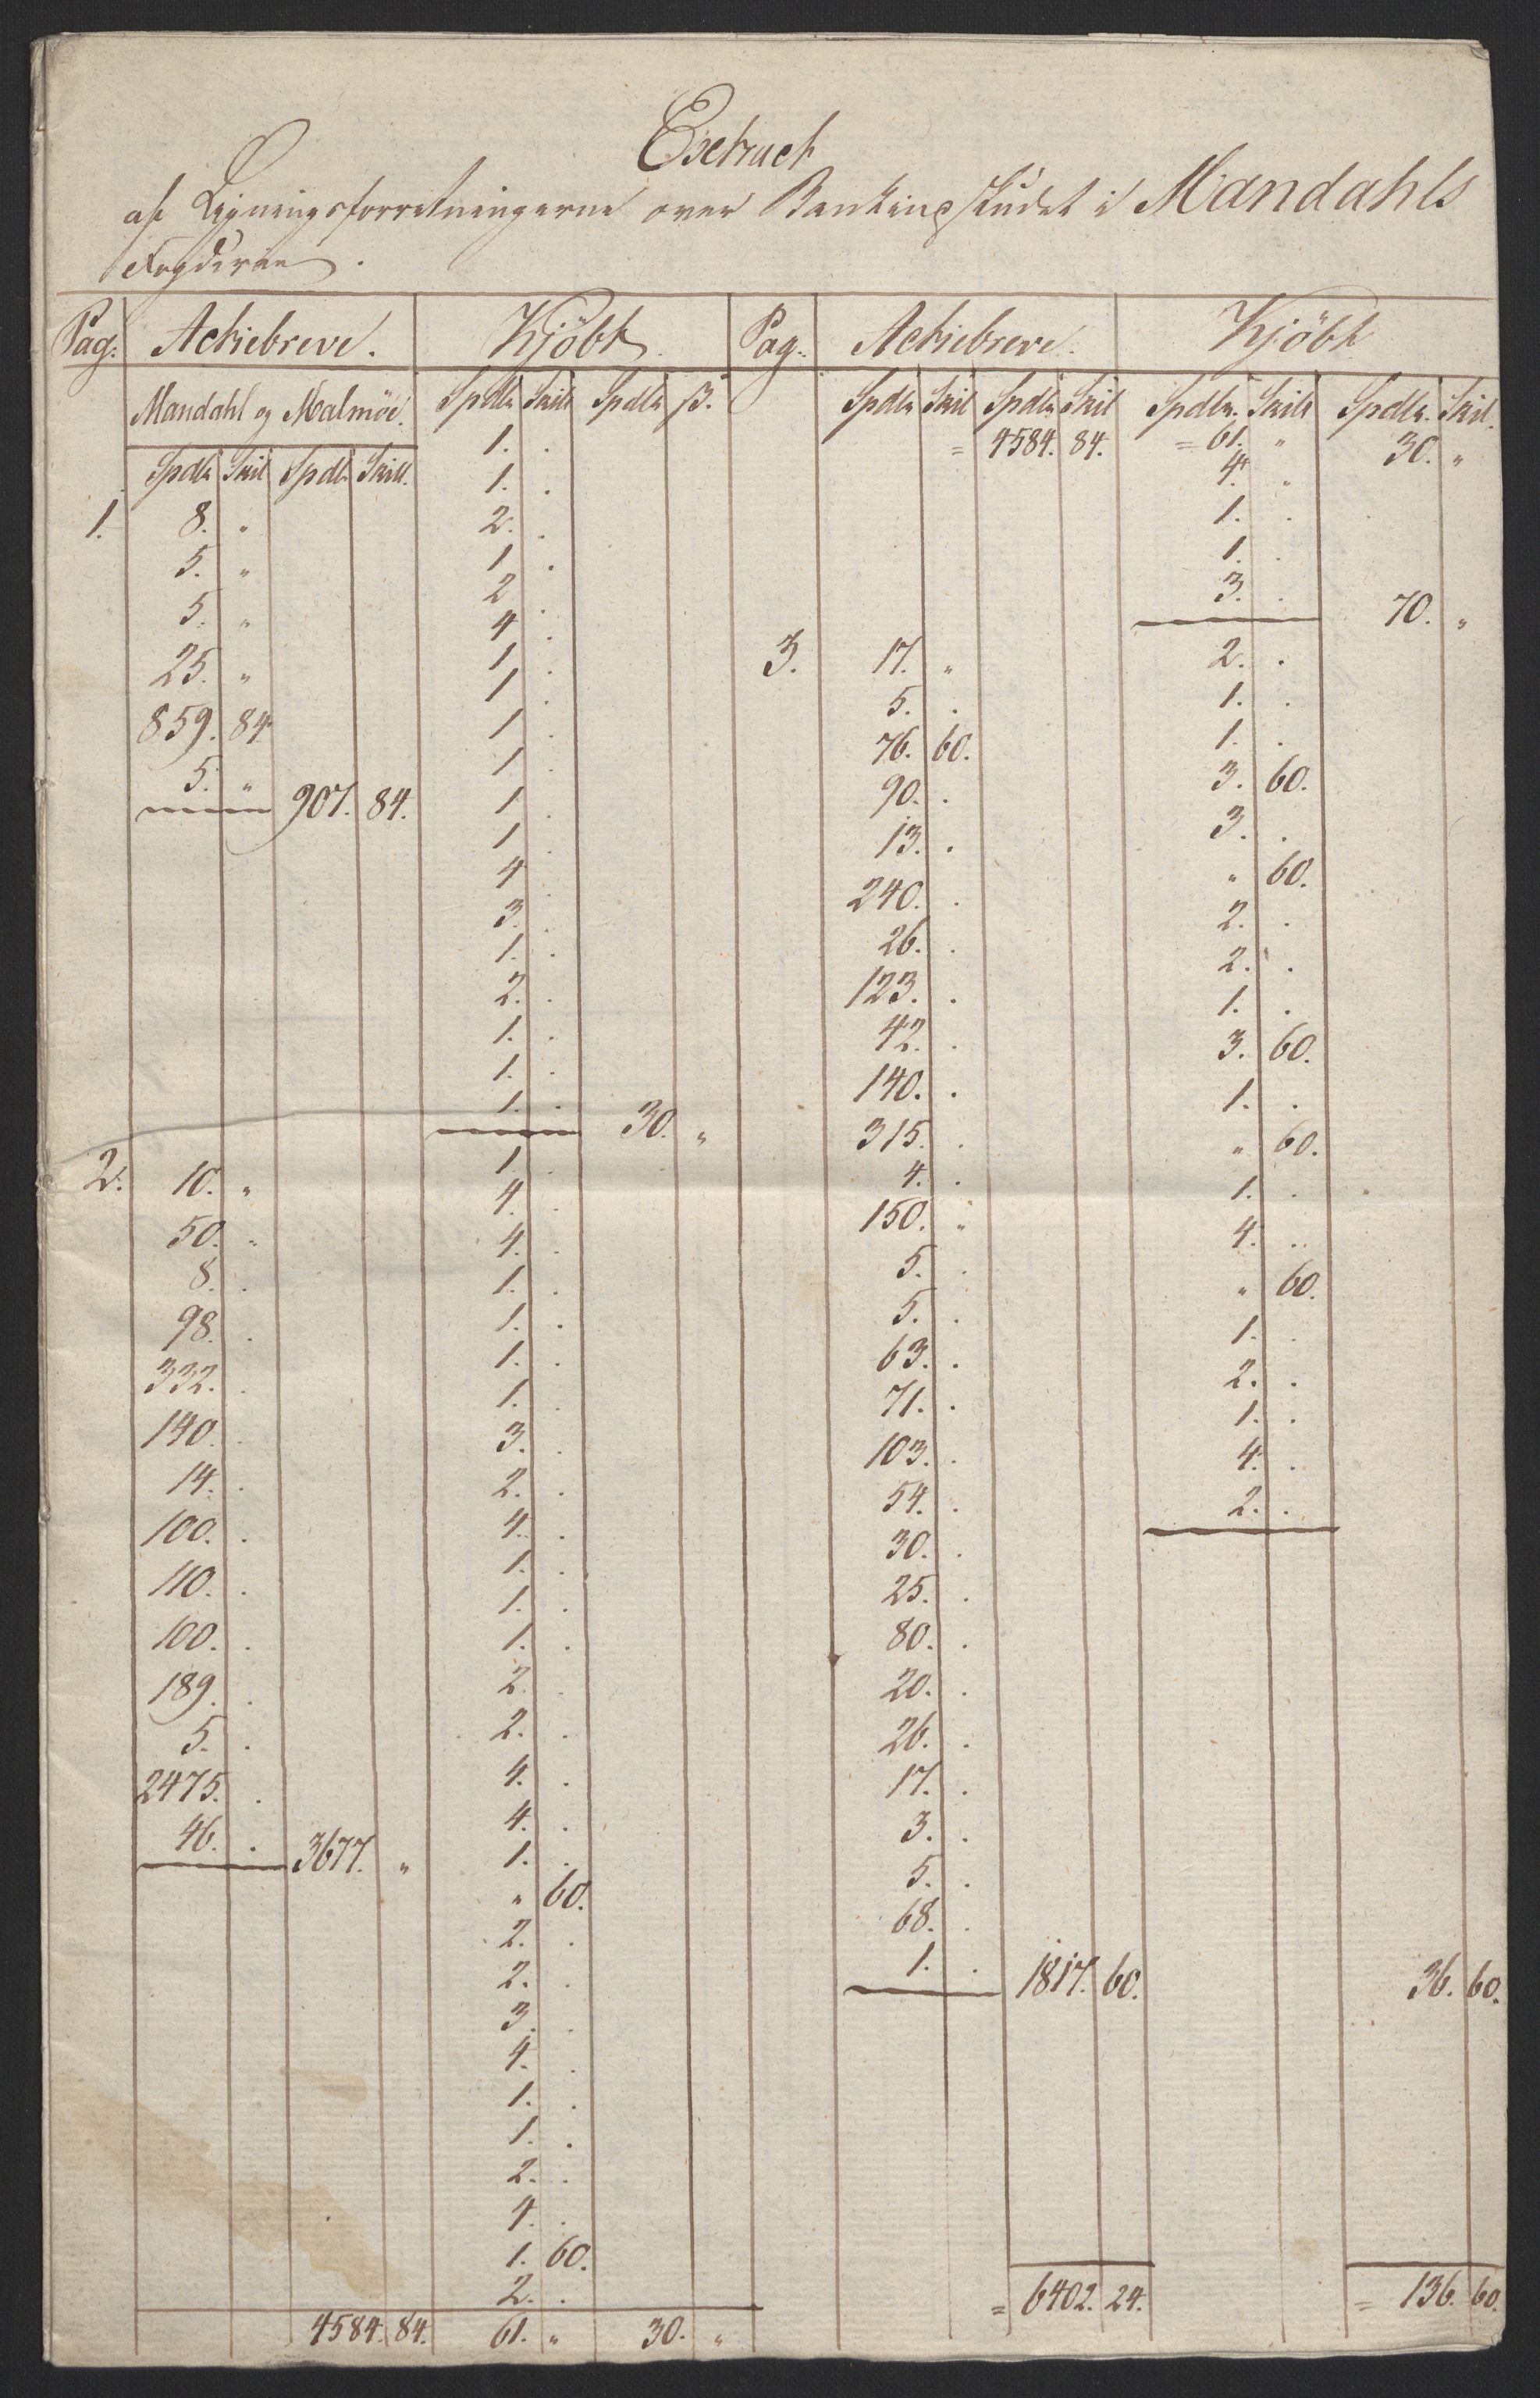 Extract
af Ligningsforretningerne over Bankindskudet i Mandahls
Fogderie.
Pag: Actiebreve. Kjöbt.
Mandahl og Malmöe. Spdlr Skill Spdlr ß.
Spdlr Skil Spdl. Skill.
1.
1. .
1. 8. " 2. .
5. " 1 .
2 .
5. " 4 .
25. " 1 .
1 .
859. 84. 1 .
5. " 907. 84. 1 .
1 .
1 .
4 .
3. .
1. .
2. .
1. .
1. .
1. . 30. "
2. 10. " 1. .
4. .
50. " 4. .
8. . 1. .
98. . 1. .
332. . 1. .
1. .
140. . 3. .
14. . 2. .
100. . 4. .
110. . 1. .
1. .
100. . 1. .
189. . 2. .
5. . 2. .
2475. . 4. .
46. . 3677. " 4. .
1. .
" 60.
2. .
2. .
3. .
4. .
1. .
1. .
2. .
4. .
1. 60.
2. .
4584. 84. 61. " 30. "
Pag. Actiebreve. Kjöbt
Spdlr Skil Spdlr Skil Spdlr. Skill Spdlr. Skil.
= 4584. 84. = 61. " 30. "
4. "
1. .
1. .
3. . 70. "
3. 17. " 2. .
5. . 1. .
76. 60. 1. .
90. . 3. 60.
13. . 3. .
240. . " 60.
26. . 2. .
123. . 2. .
42. . 1. .
140. . 3. 60.
315. . 1. .
4. . " 60.
150. " 1. .
5. . 4. ..
5. . " 60.
63. . 1. .
71. . 2. .
103. . 1. .
54. . 4. .
30. . 2. .
25. .
80. .
20. .
26. .
17. .
3. .
5. .
68. .
1. . 1817. 60. 36. 60.
= 6402. 24. = 136. 60.